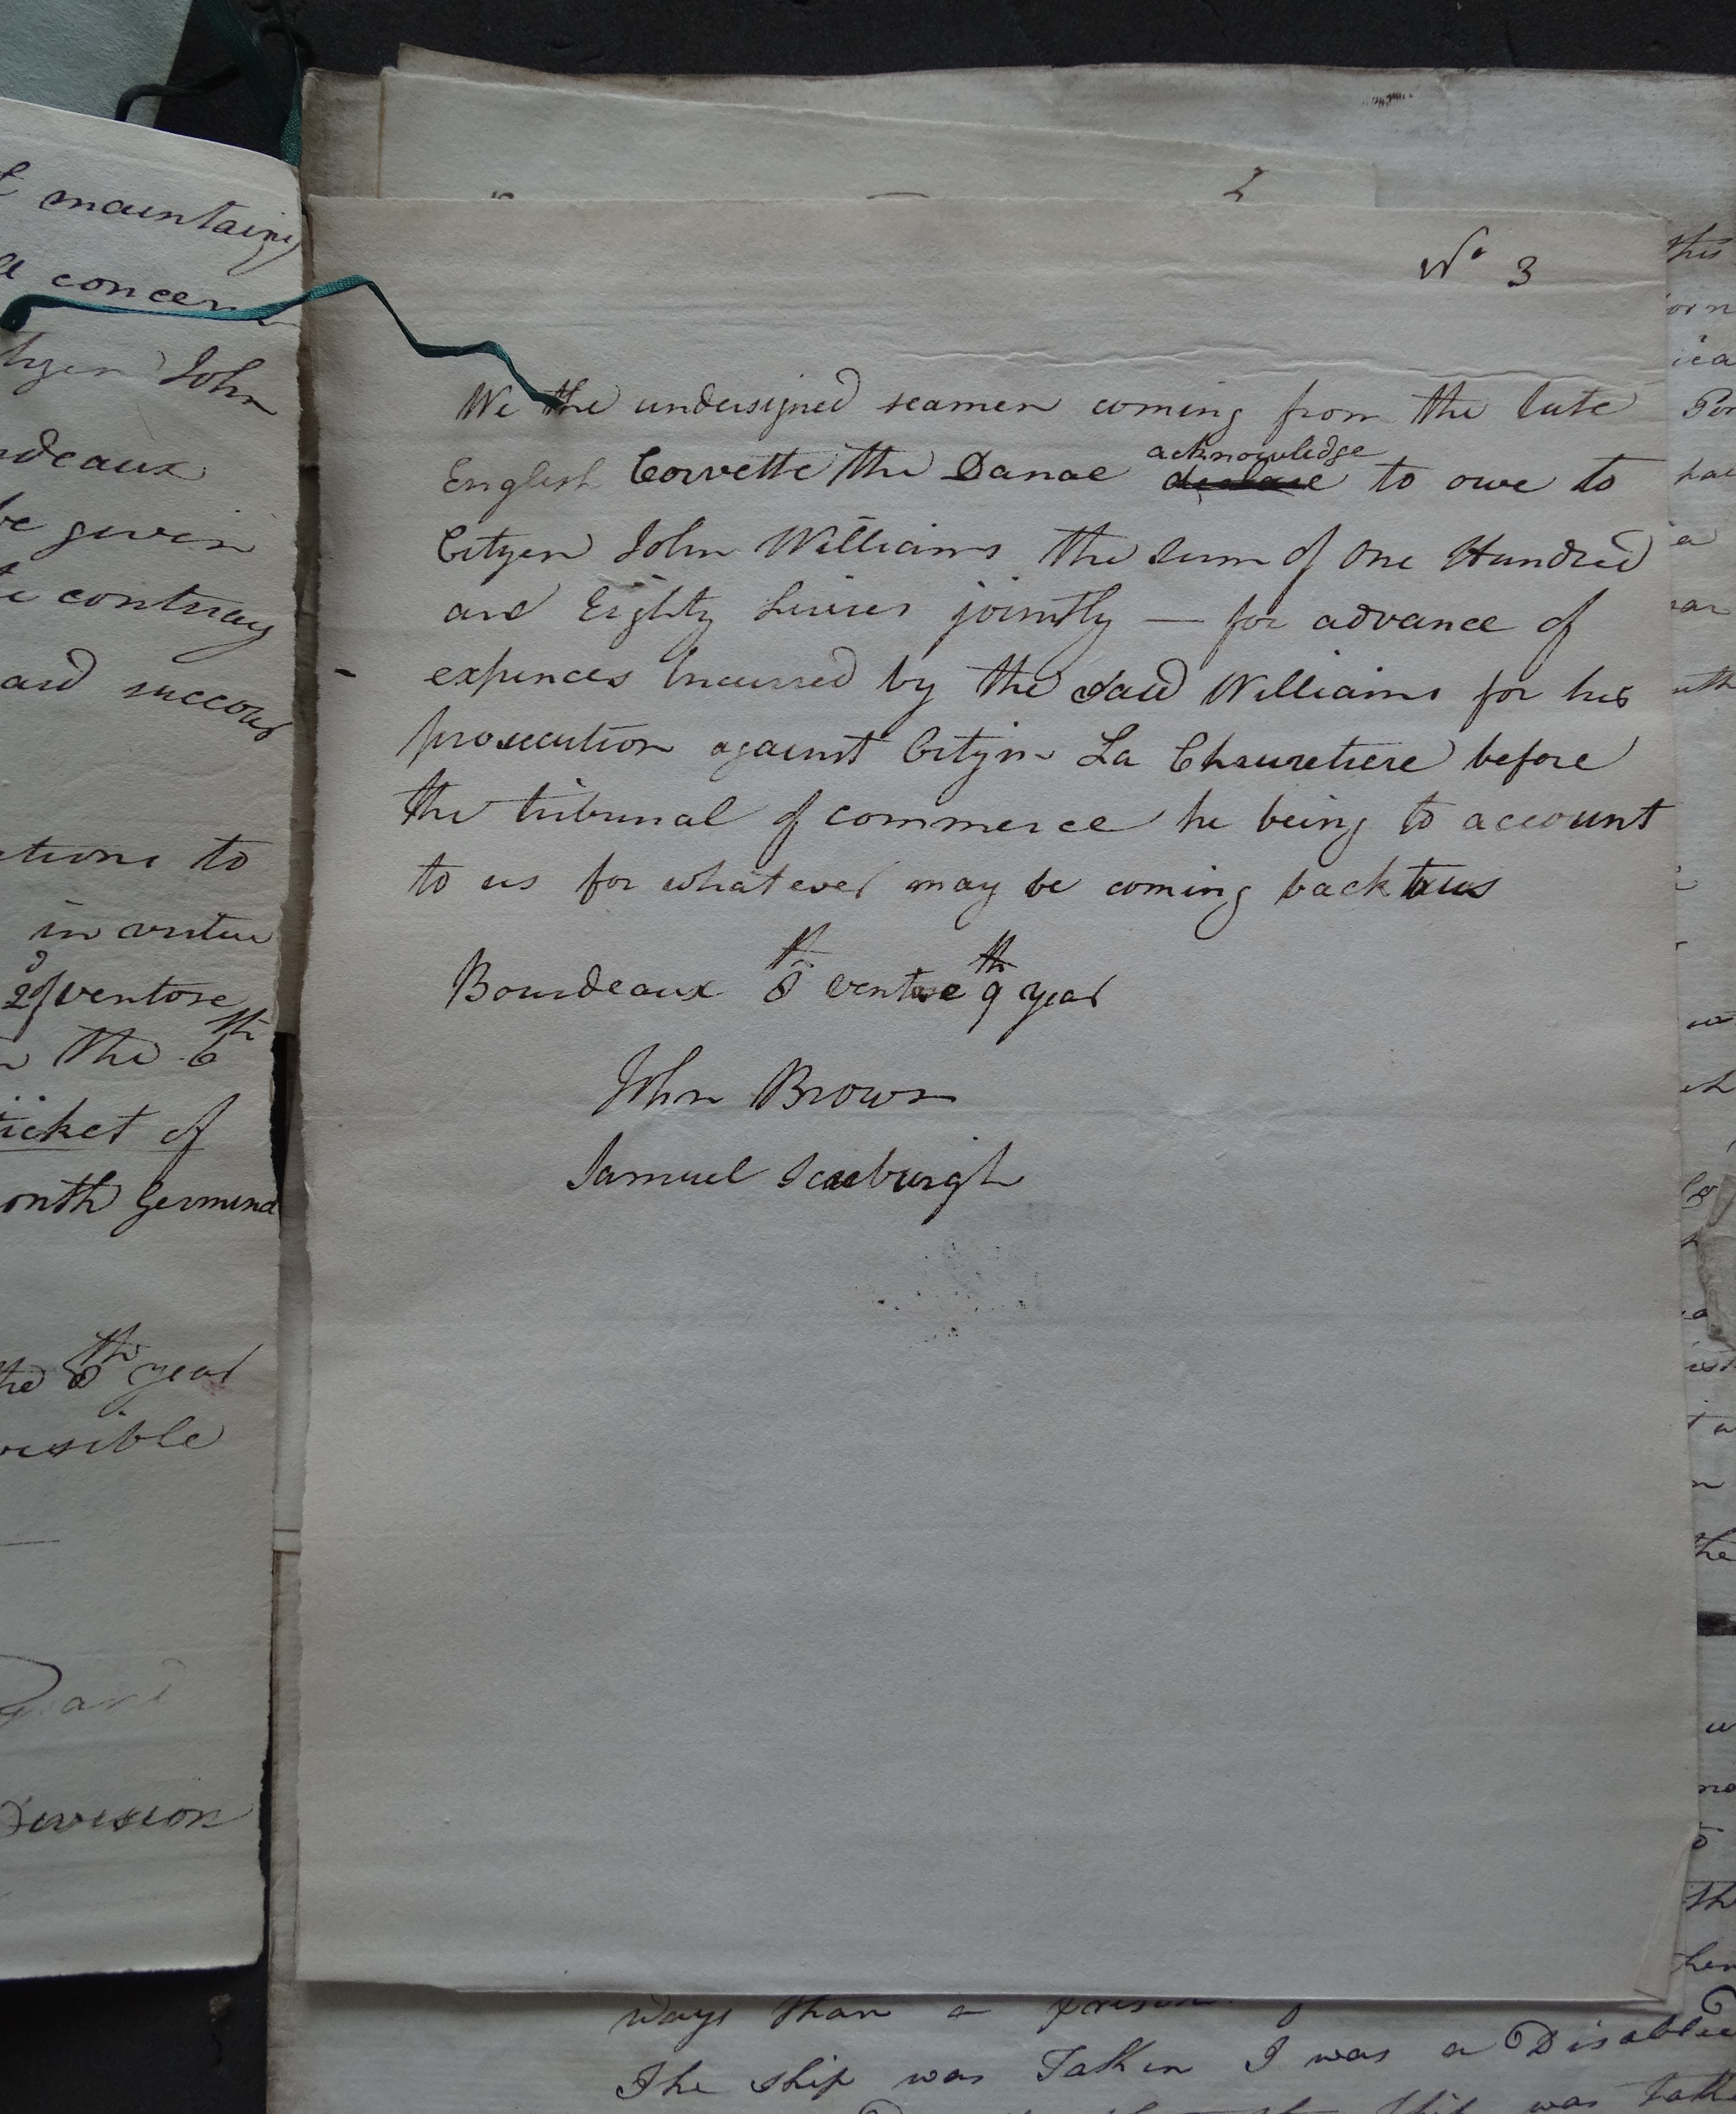 t maintaing
concern
tyzen John
rdeaux
be given
e contrary
and succour
ations to
in vertue
2d of ventose
the 6th
ticket of
onth Germinal
the 8th year
visible
Division
2
No 3
We the undersigned seamen coming from the late
acknowledge
English Corvette the Danae declare to owe to
Cityzen John Williams the sum of One Hundred
and Eighty Livres jointly — for advance of
expences incurred by the said Williams for his
prosecution against Cityzn La Chauretiere before
the tribunal of commerce he being to account
to us for whatever may be coming back to us
Bourdeaux 8th ventose 9th year
John Brown
Samuel Seaburgh
ways than a prison
The ship was Taken I was a Disabled
this
the